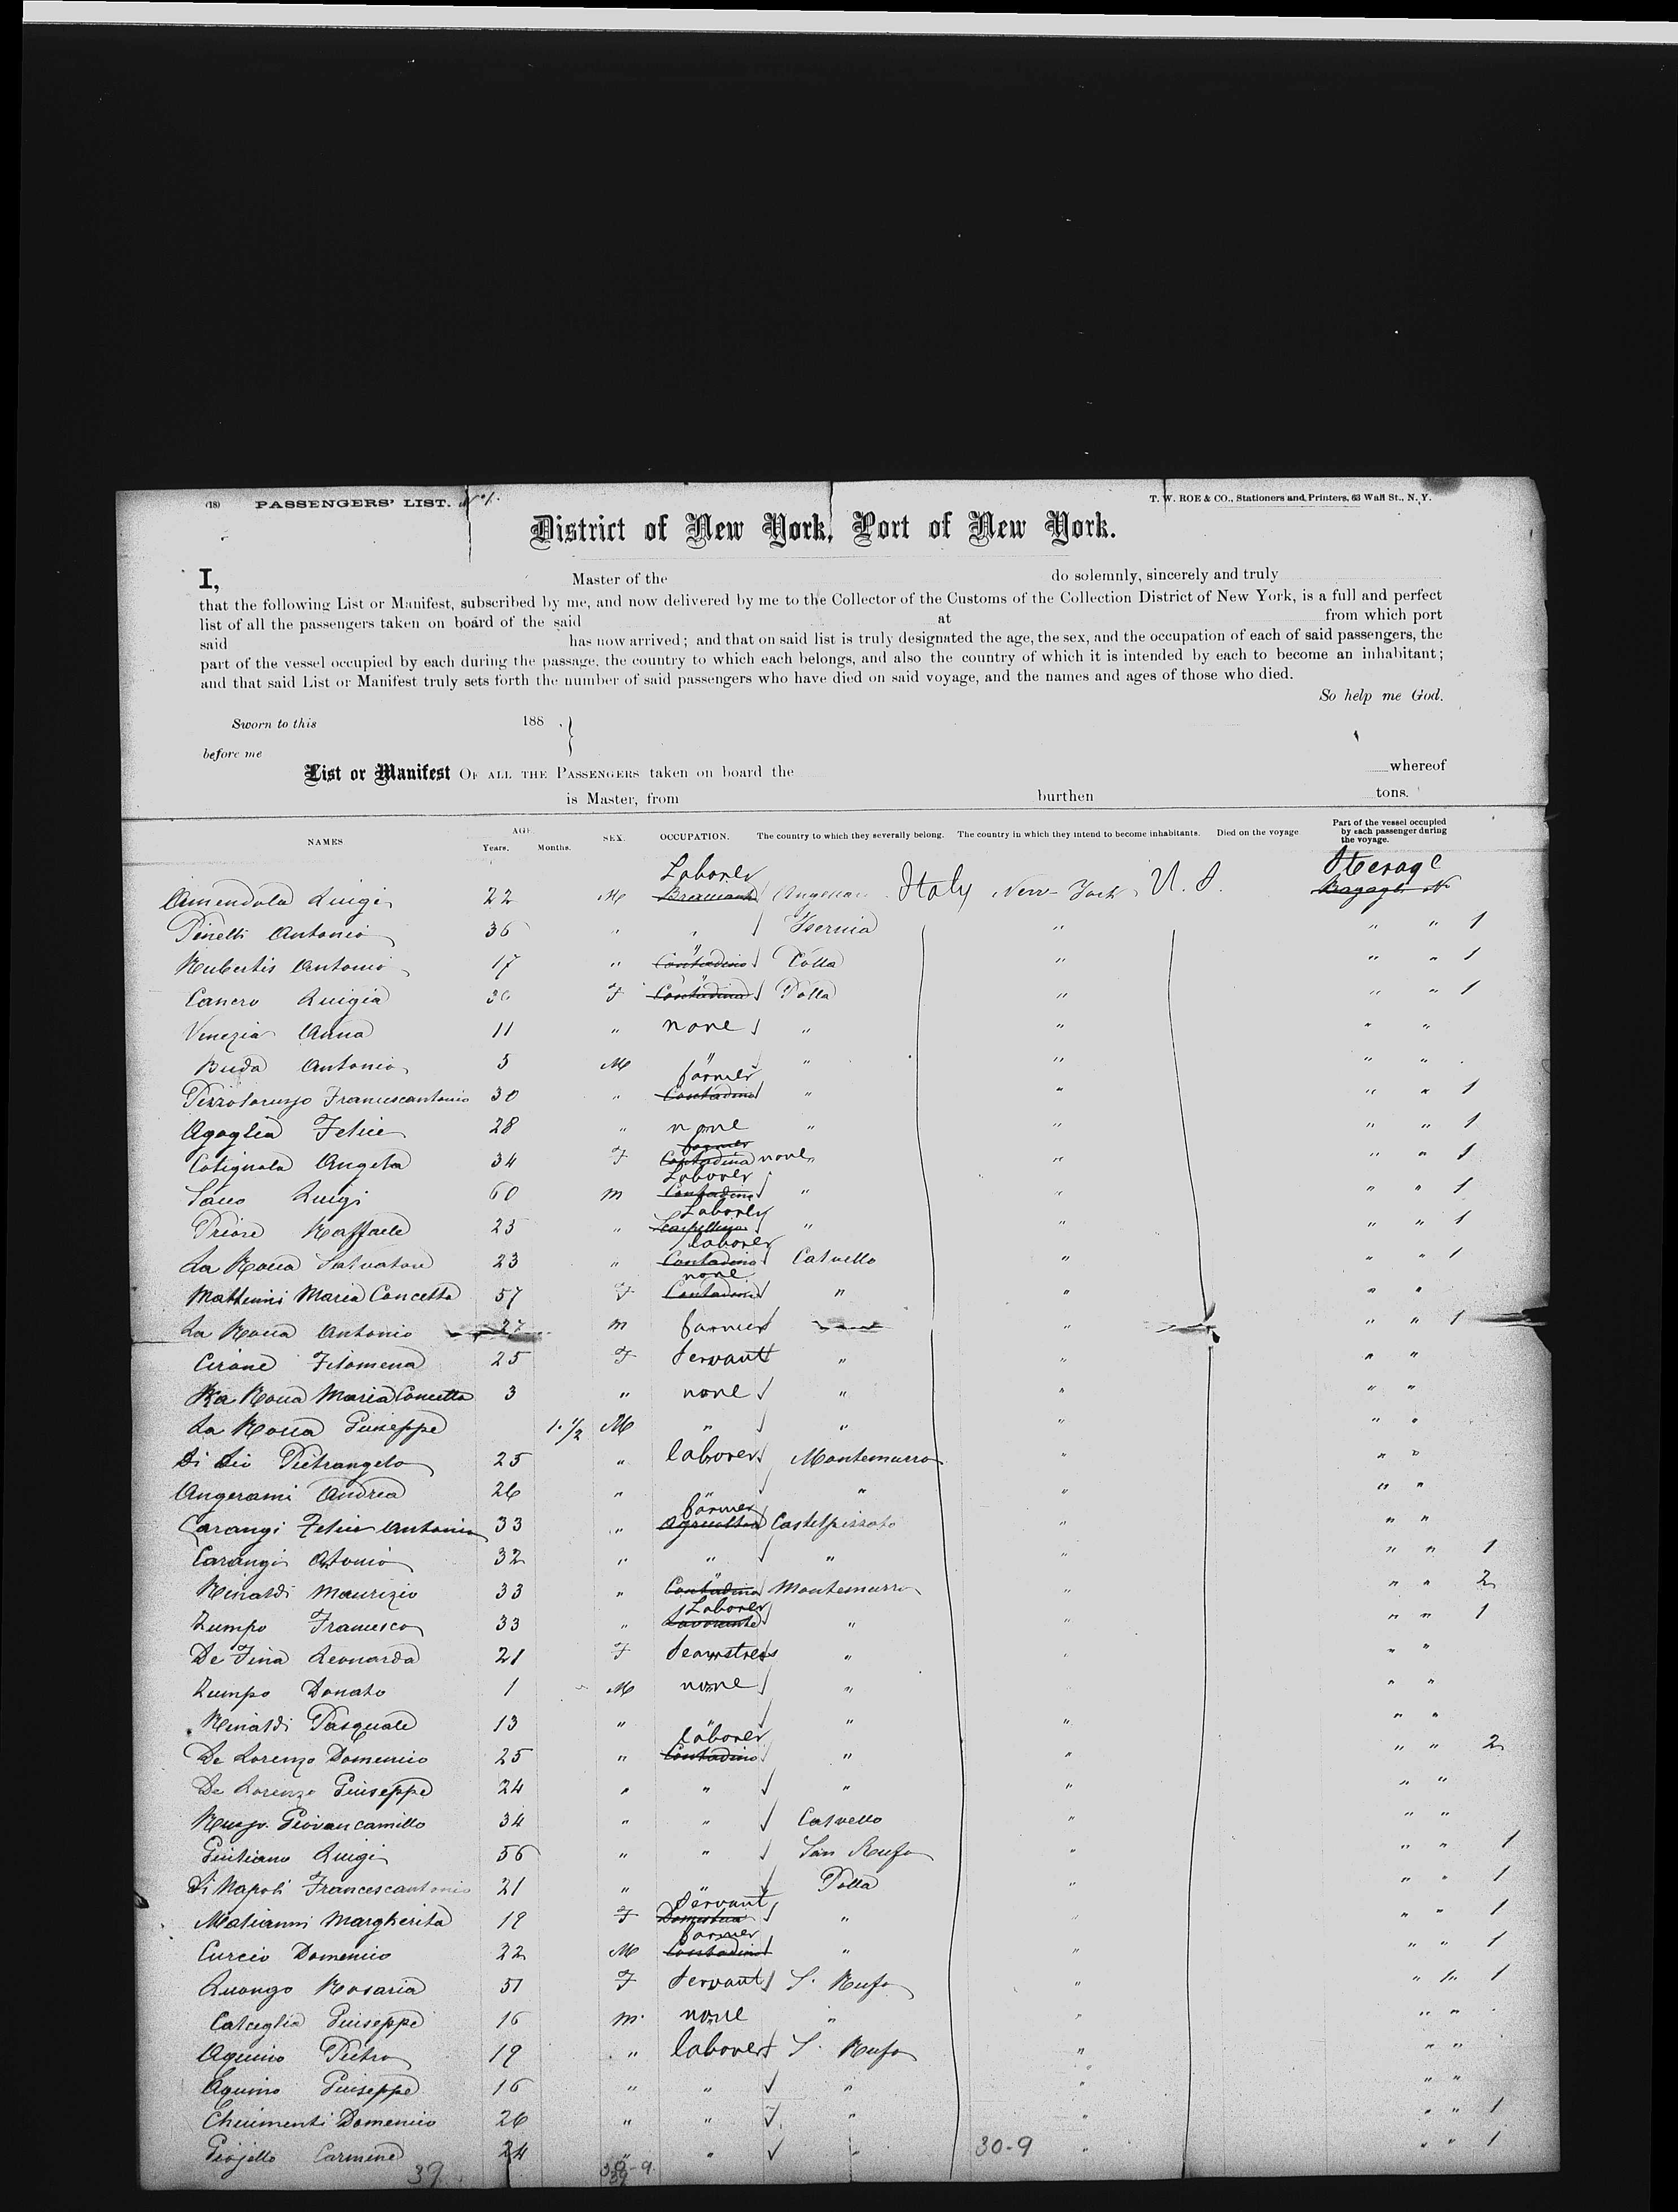 (18) PASSENGERS' LIST. No 1.
T. W. ROE & CO., Stationers and Printers, 63 Wall St., N. Y.
District of New York, Port of New York.
I, Master of the do solemnly, sincerely and truly
that the following List or Manifest, subscribed by me, and now delivered by me to the Collector of the Customs of the Collection District of New York, is a full and perfect
list of all the passengers taken on board of the said at from which port
said has now arrived; and that on said list is truly designated the age, the sex, and the occupation of each of said passengers, the
part of the vessel occupied by each during the passage, the country to which each belongs, and also the country of which it is intended by each to become an inhabitant;
and that said List or Manifest truly sets forth the number of said passengers who have died on said voyage, and the names and ages of those who died.
So help me God.
Sworn to this 188
before me
List or Manifest OF ALL THE PASSENGERS taken on board the whereof
is Master, from burthen tons.
NAMES AGE. Years. Months. SEX. OCCUPATION. The country to which they severally belong. The country in which they intend to become inhabitants. Died on the voyage Part of the vessel occupied by each passenger during the voyage.
Amendola Luigi 22 M Laborer Italy New York U. S. Steerage
Pinelli Antonio 36 " " Isernia " " " 1
Rubertis Antonio 17 " " Contadino Polla " " " 1
Canero Luigia F " Contadina Polla " " " 1
Venezia Anna 11 " none " " " "
Buda Antonio M " " " " "
Pizzolorusso Francescantonio 30 " farmer Contadino " " " " 1
Agoglia Felice 28 " none " " " " 1
Cotignola Angela 34 F farmer Contadina none " " " " 1
Sacco Luigi 60 m Laborer Contadino " " " " 1
Priore Raffaele 23 " Laborer Scarpellino " " " " 1
La Rocca Salvatore 23 " laborer Contadino Calvello " " " 1
Matteini Maria Concetta 57 F none Contadina " " " "
La Rocca Antonio 27 m farmer " " " 1
Cirone Filomena 25 F Servant " " " "
La Rocca Maria Concetta 3 " none " " " "
La Rocca Giuseppe 1. 1/2 M " " " " "
Di Dio Pietrangelo 25 " laborer Montemurro " " "
Angerami Andrea 26 " " " " " "
Carangi Felice Antonio 33 " farmer Agricoltore Castelpizzuto " " "
Carangi Antonio 32 " " " " " " 1
Rinaldi Maurizio 33 " " Contadino Montemurro " " " 2
Zumpo Francesco 33 " Laborer Lavorante " " " " 1
De Fina Leonarda 21 F Seamstress " " " "
Zumpo Donato 1 M none " " "
Rinaldi Pasquale 13 " " " " " "
De Lorenzo Domenico 25 " laborer Contadino " " " " 2
De Lorenzo Giuseppe 24 " " " " " "
Giovancamillo 34 " " Calvello " " "
Giuliano Luigi 56 " " San Rufo " " " 1
Di Napoli Francescantonio 21 " " Polla " " " 1
Margherita 19 F Servant Domestica " " " " 1
Curcio Domenico 22 M farmer Contadino " " " " 1
Luongo Rosaria 51 F Servant S. Rufo " " " 1
Giuseppe 16 m. none " " " "
Aquino Pietro 19 " laborer S. Rufo " " "
Aquino Giuseppe 16 " " " " " "
Chirimenti Domenico 26 " " " " " " 1
Carmine 24 " " " 30-9 " " " 1
39. 30-9
39